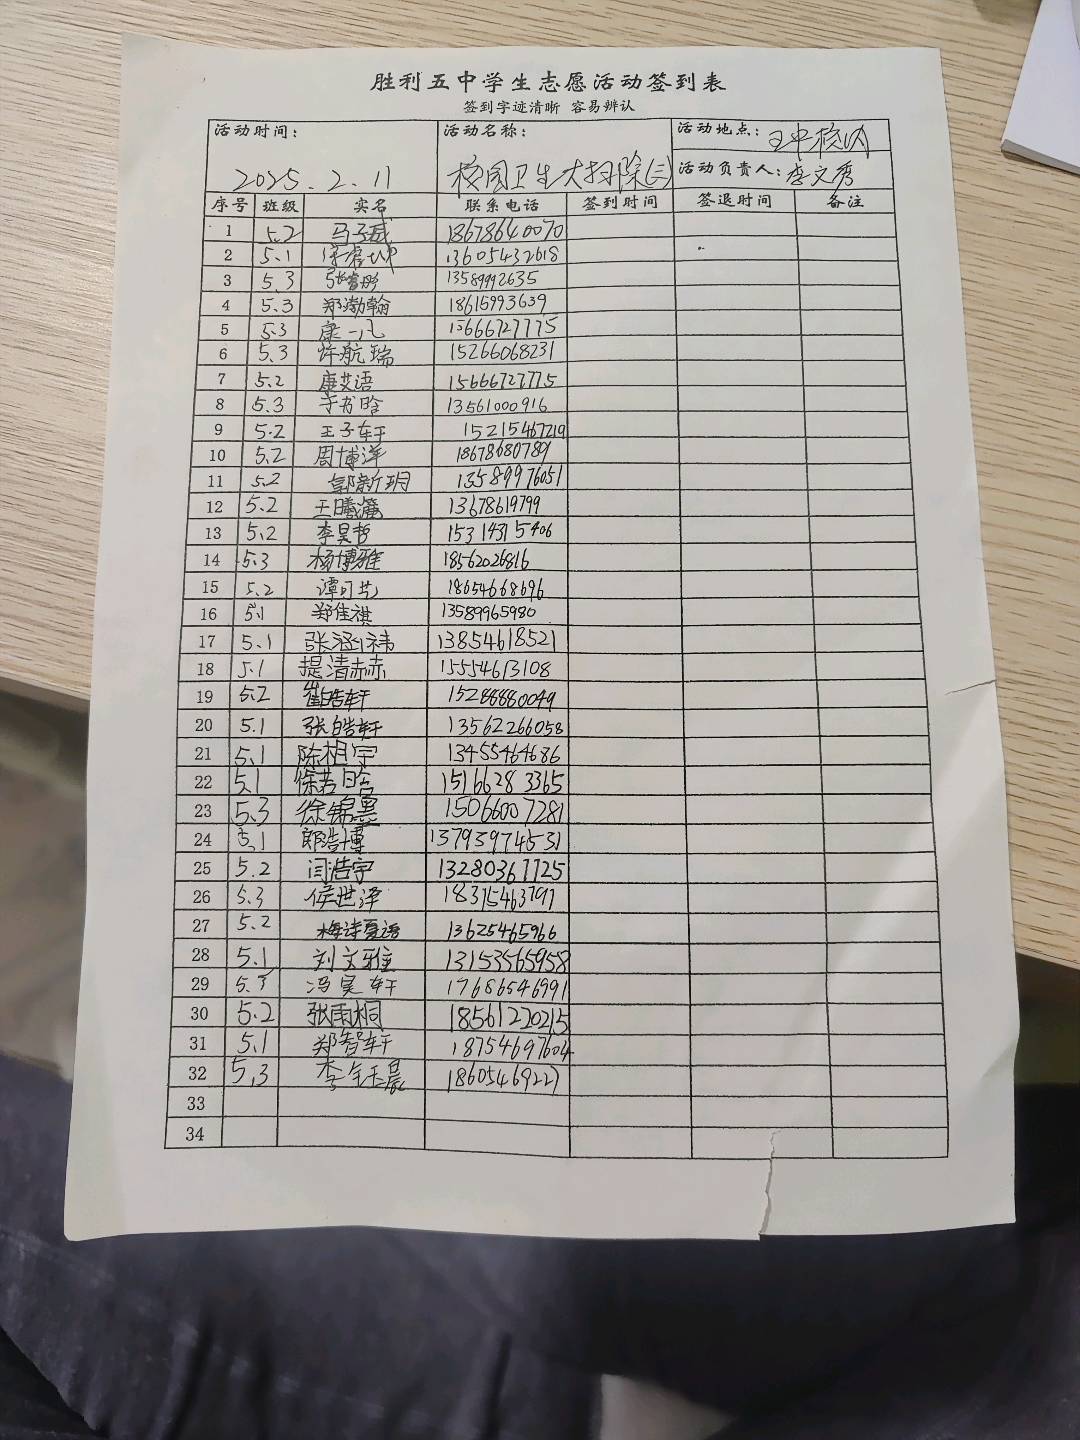 胜利五中学生志愿活动签到表
签到字迹清晰 容易辨认
活动时间: 2025.2.11 活动名称: 校园卫生大扫除(三) 活动地点: 五中校内
活动负责人: 李文秀
序号 班级 实名 联系电话 签到时间 签退时间 备注
1 5.2 马子威 18678640070
2 5.1 13605432618
3 5.3 张睿彤 13589992635
4 5.3 郑渤翰 18615993639
5 5.3 康一凡 15666727775
6 5.3 许航瑞 15266068231
7 5.2 康艾语 15666727775
8 5.3 于书晗 13561000916
9 5.2 王子轩 15215467219
10 5.2 周博洋 18678680789
11 5.2 郭新玥 13589976051
12 5.2 王曦 13678619799
13 5.2 李昊哲 15314315406
14 5.3 杨博雅 18562026816
15 5.2 谭可艺 18654668696
16 5.1 郑佳祺 13589965980
17 5.1 张涵祎 13854618521
18 5.1 提清赫 15554613108
19 5.2 崔皓轩 15288880049
20 5.1 张皓轩 13562266058
21 5.1 陈相宇 13455464686
22 5.1 徐若晗 15166283365
23 5.3 徐锦冀 15066007281
24 5.1 郎浩博 13793974531
25 5.2 闫浩宇 13280367725
26 5.3 侯世泽 18315463797
27 5.2 梅诗夏语 13625465966
28 5.1 刘文雅 13153565958
29 5.3 冯奕轩 17686546991
30 5.2 张雨桐 18561220215
31 5.1 郑智轩 18754697604
32 5.3 李钰晨 18605469227
33
34